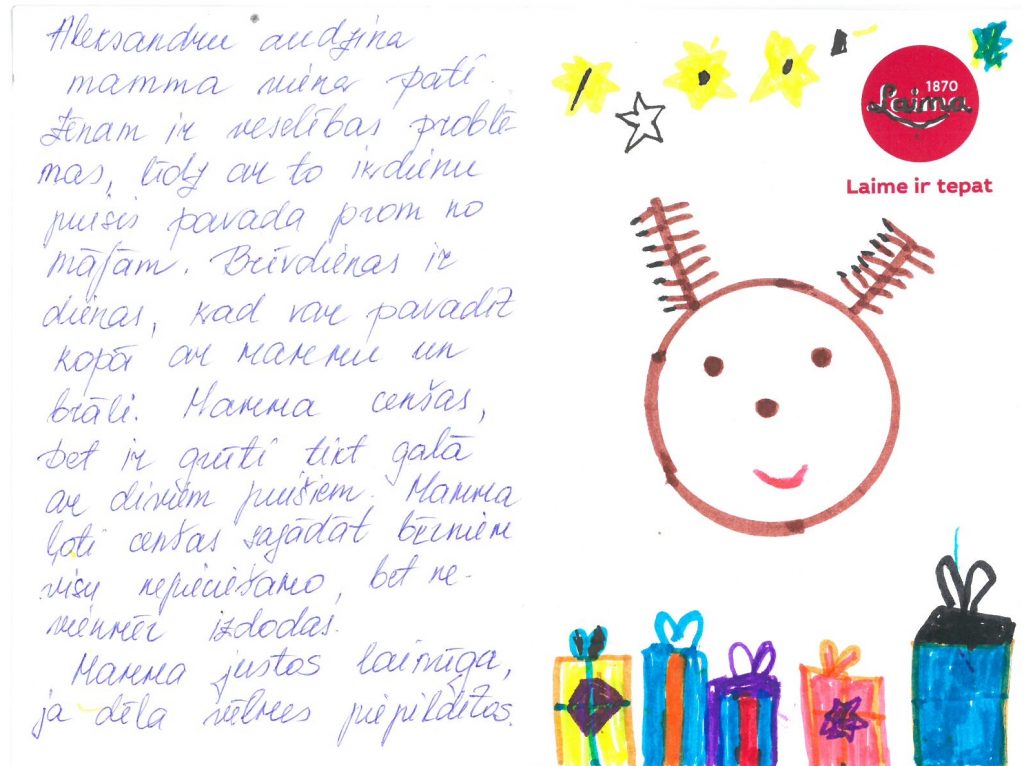 Aleksandru audzina
mamma viena pati.
Zēnam ir veselības problē-
mas, līdz ar to ikdienu
puisis pavada prom no
mājām. Brīvdienas ir
dienas, kad var pavadīt
kopā ar mammu un
brāli. Mamma cenšas,
bet ir grūti tikt galā
ar diviem puišiem. Mamma
ļoti cenšas sagādāt bērniem
visu nepieciešamo, bet ne-
vienmēr izdodas.
Mamma justos laimīga,
ja dēla vēlmes piepildītos.
1870
Laima
Laime ir tepat